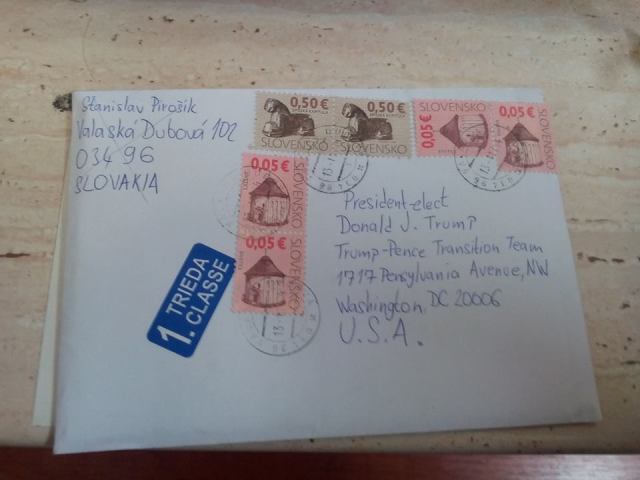 Stanislav Pirošík
Valaská Dubová 102
034 96
SLOVAKIA
0,50€
SLOVENSKO
0,50€
SLOVENSKO
SLOVENSKO
0,05€
0,05€
0,05€
SLOVENSKO
0,05€
SLOVENSKO
1. TRIEDA
CLASSE
President-elect
Donald J. Trump
Trump-Pence Transition Team
1717 Pensylvania Avenue, NW
Washington, DC 20006
U.S.A.